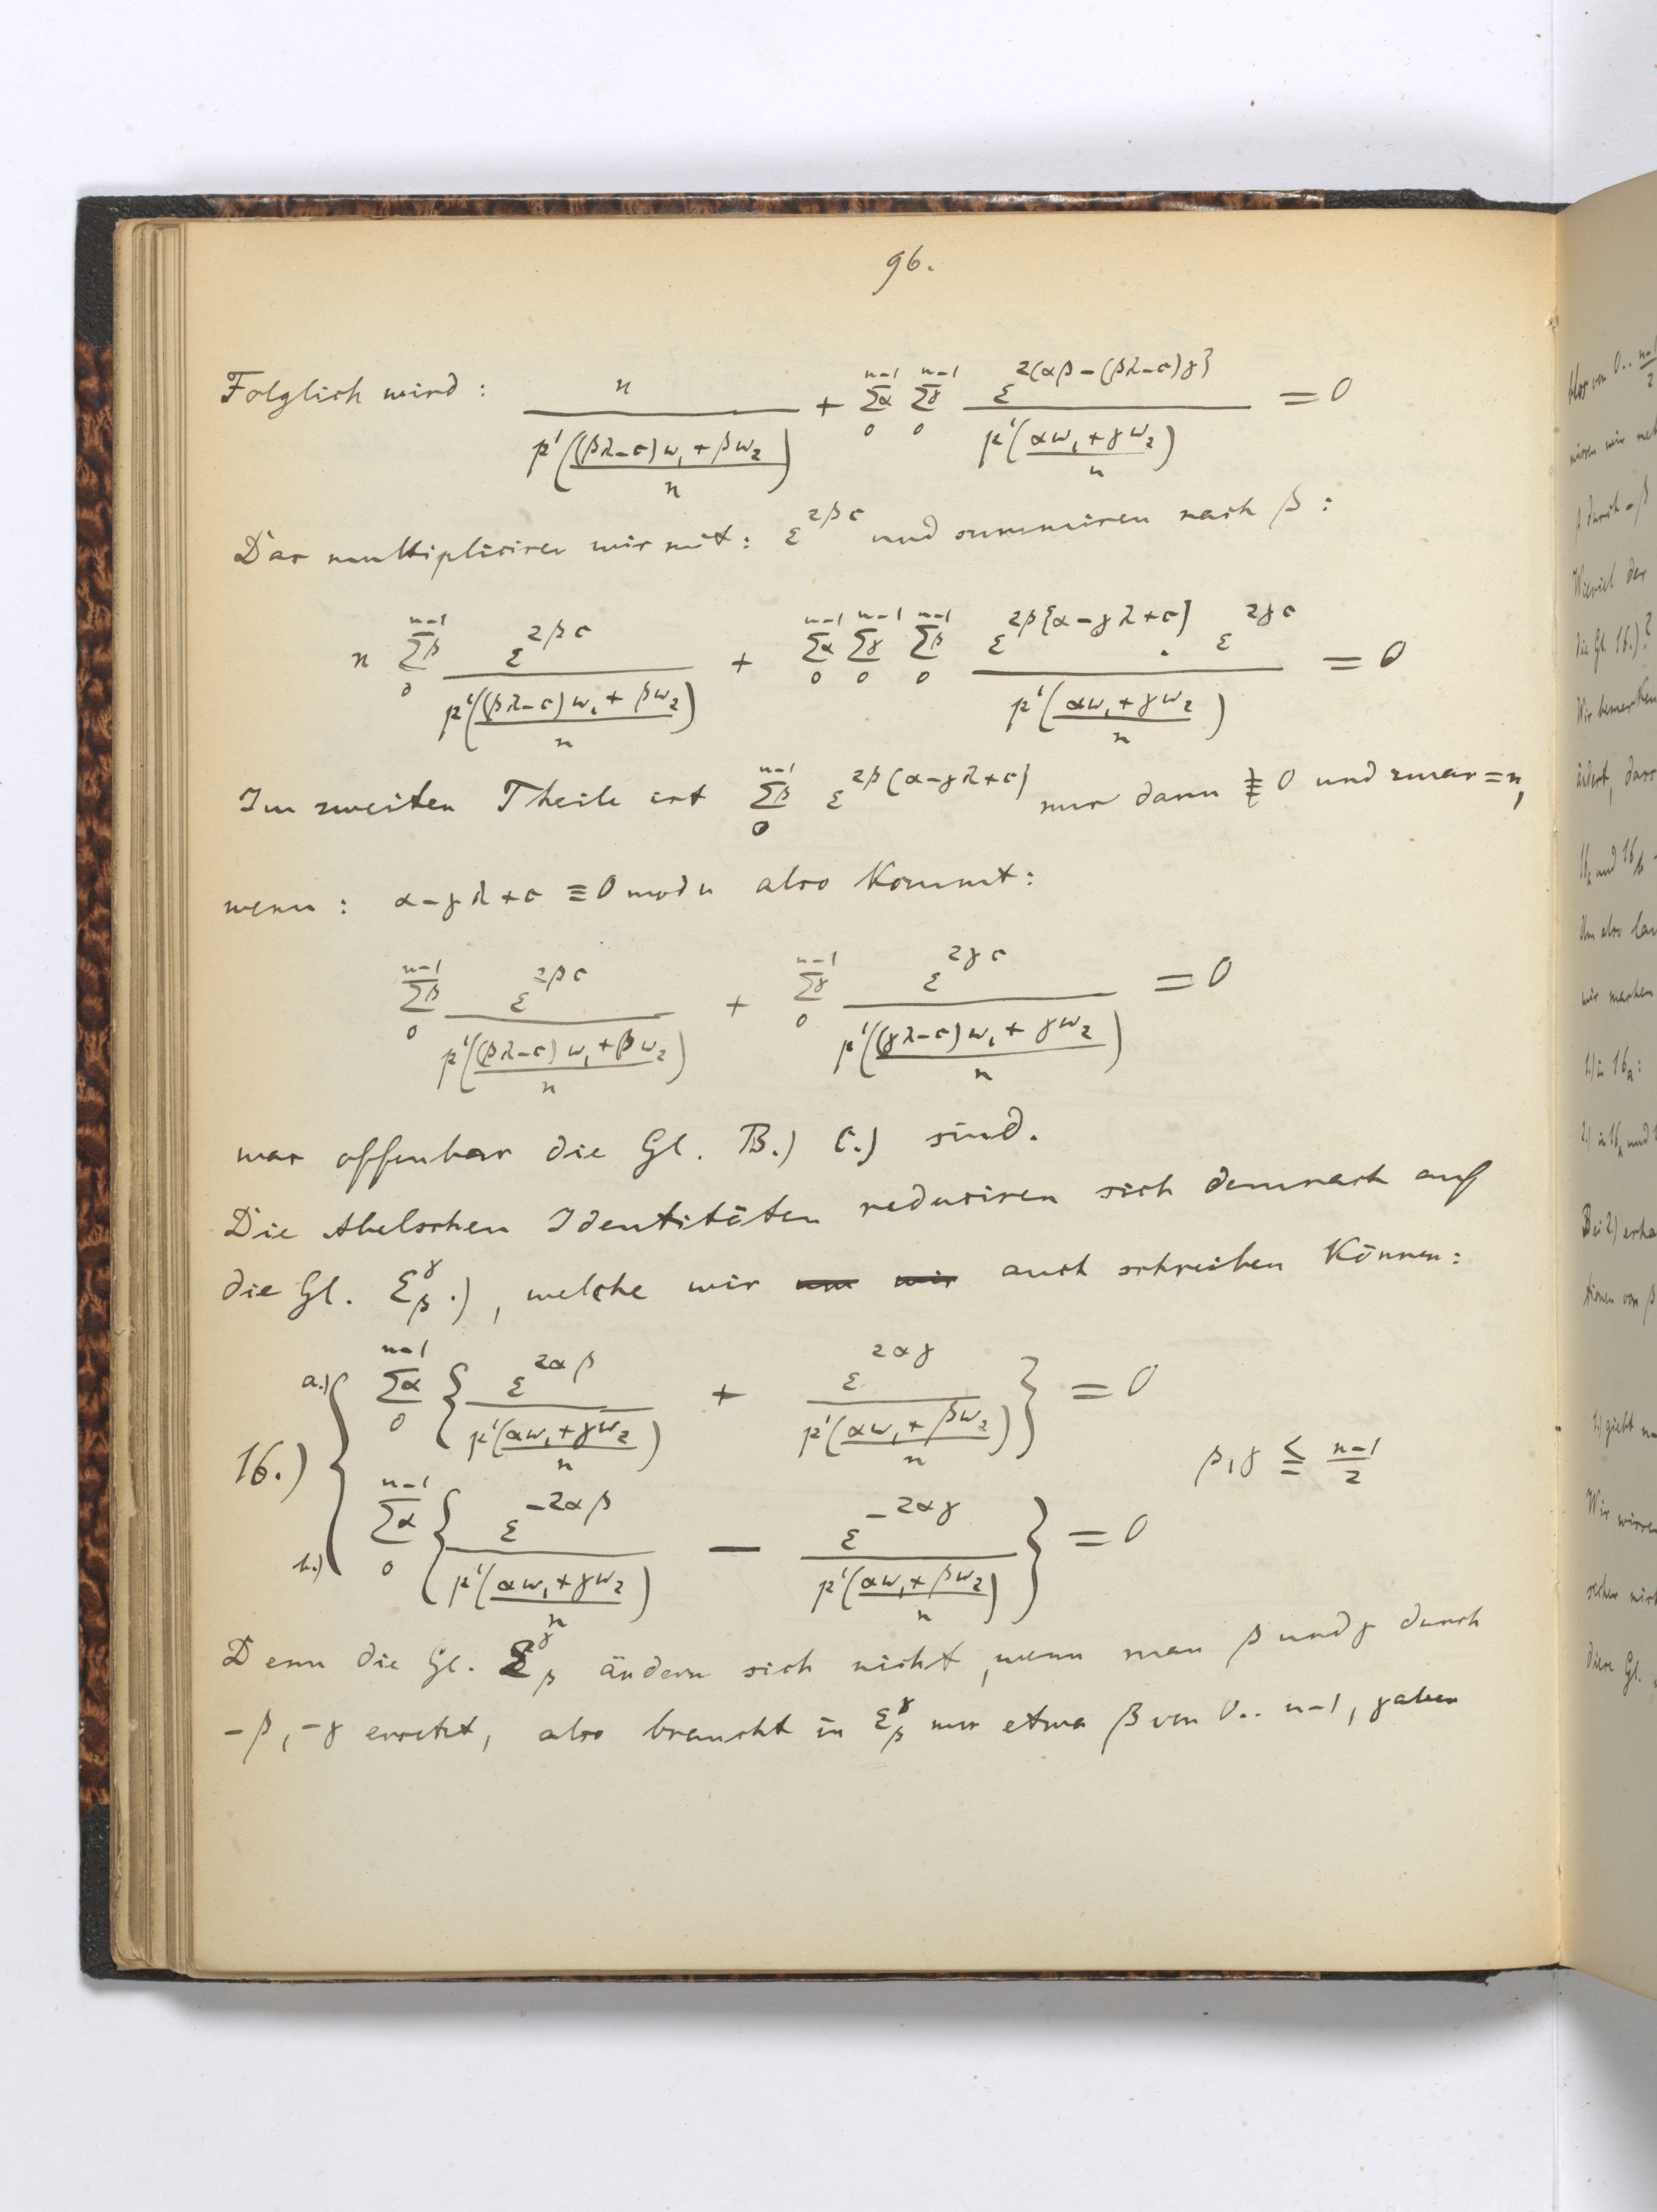 96.
Folglich wird: \frac{n}{p'\left(\frac{(\beta\lambda-c)w_1+\beta w_2}{n}\right)} + \sum_0^{n-1}{}_\alpha \sum_0^{n-1}{}_\gamma \frac{\varepsilon^{2(\alpha\beta-(\beta\lambda-c)\gamma)}}{p'\left(\frac{\alpha w_1+\gamma w_2}{n}\right)} = 0
Das multipliciren wir mit: \varepsilon^{2\beta c} und summiren nach β:
n \sum_0^{n-1}{}_\beta \frac{\varepsilon^{2\beta c}}{p'\left(\frac{(\beta\lambda-c)w_1+\beta w_2}{n}\right)} + \sum_0^{n-1}{}_\alpha \sum_0^{n-1}{}_\gamma \sum_0^{n-1}{}_\beta \frac{\varepsilon^{2\beta[\alpha-\gamma\lambda+c]} . \varepsilon^{2\gamma c}}{p'\left(\frac{\alpha w_1+\gamma w_2}{n}\right)} = 0
Im zweiten Theile ist \sum_0^{n-1}{}_\beta \varepsilon^{2\beta(\alpha-\gamma\lambda+c)} nur dann ≢ 0 und zwar = n,
wenn: α-γλ+c ≡ 0 mod n also kommt:
\sum_0^{n-1}{}_\beta \frac{\varepsilon^{2\beta c}}{p'\left(\frac{(\beta\lambda-c)w_1+\beta w_2}{n}\right)} + \sum_0^{n-1}{}_\gamma \frac{\varepsilon^{2\gamma c}}{p'\left(\frac{(\gamma\lambda-c)w_1+\gamma w_2}{n}\right)} = 0
was offenbar die Gl. B.) C.) sind.
Die Abelschen Identitäten reduciren sich demnach auf
die Gl. Σ_β^γ.), welche wir auch schreiben können:
16.) a.) \sum_0^{n-1}{}_\alpha \left\{\frac{\varepsilon^{2\alpha\beta}}{p'\left(\frac{\alpha w_1+\gamma w_2}{n}\right)} + \frac{\varepsilon^{2\alpha\gamma}}{p'\left(\frac{\alpha w_1+\beta w_2}{n}\right)}\right\} = 0
β, γ ≦ \frac{n-1}{2}
b.) \sum_0^{n-1}{}_\alpha \left\{\frac{\varepsilon^{-2\alpha\beta}}{p'\left(\frac{\alpha w_1+\gamma w_2}{n}\right)} - \frac{\varepsilon^{-2\alpha\gamma}}{p'\left(\frac{\alpha w_1+\beta w_2}{n}\right)}\right\} = 0
Denn die Gl. Σ_β^γ ändern sich nicht, wenn man β und γ durch
-β, -γ ersetzt, also braucht in Σ_β^γ nur etwa β von 0.. n-1, γ aber